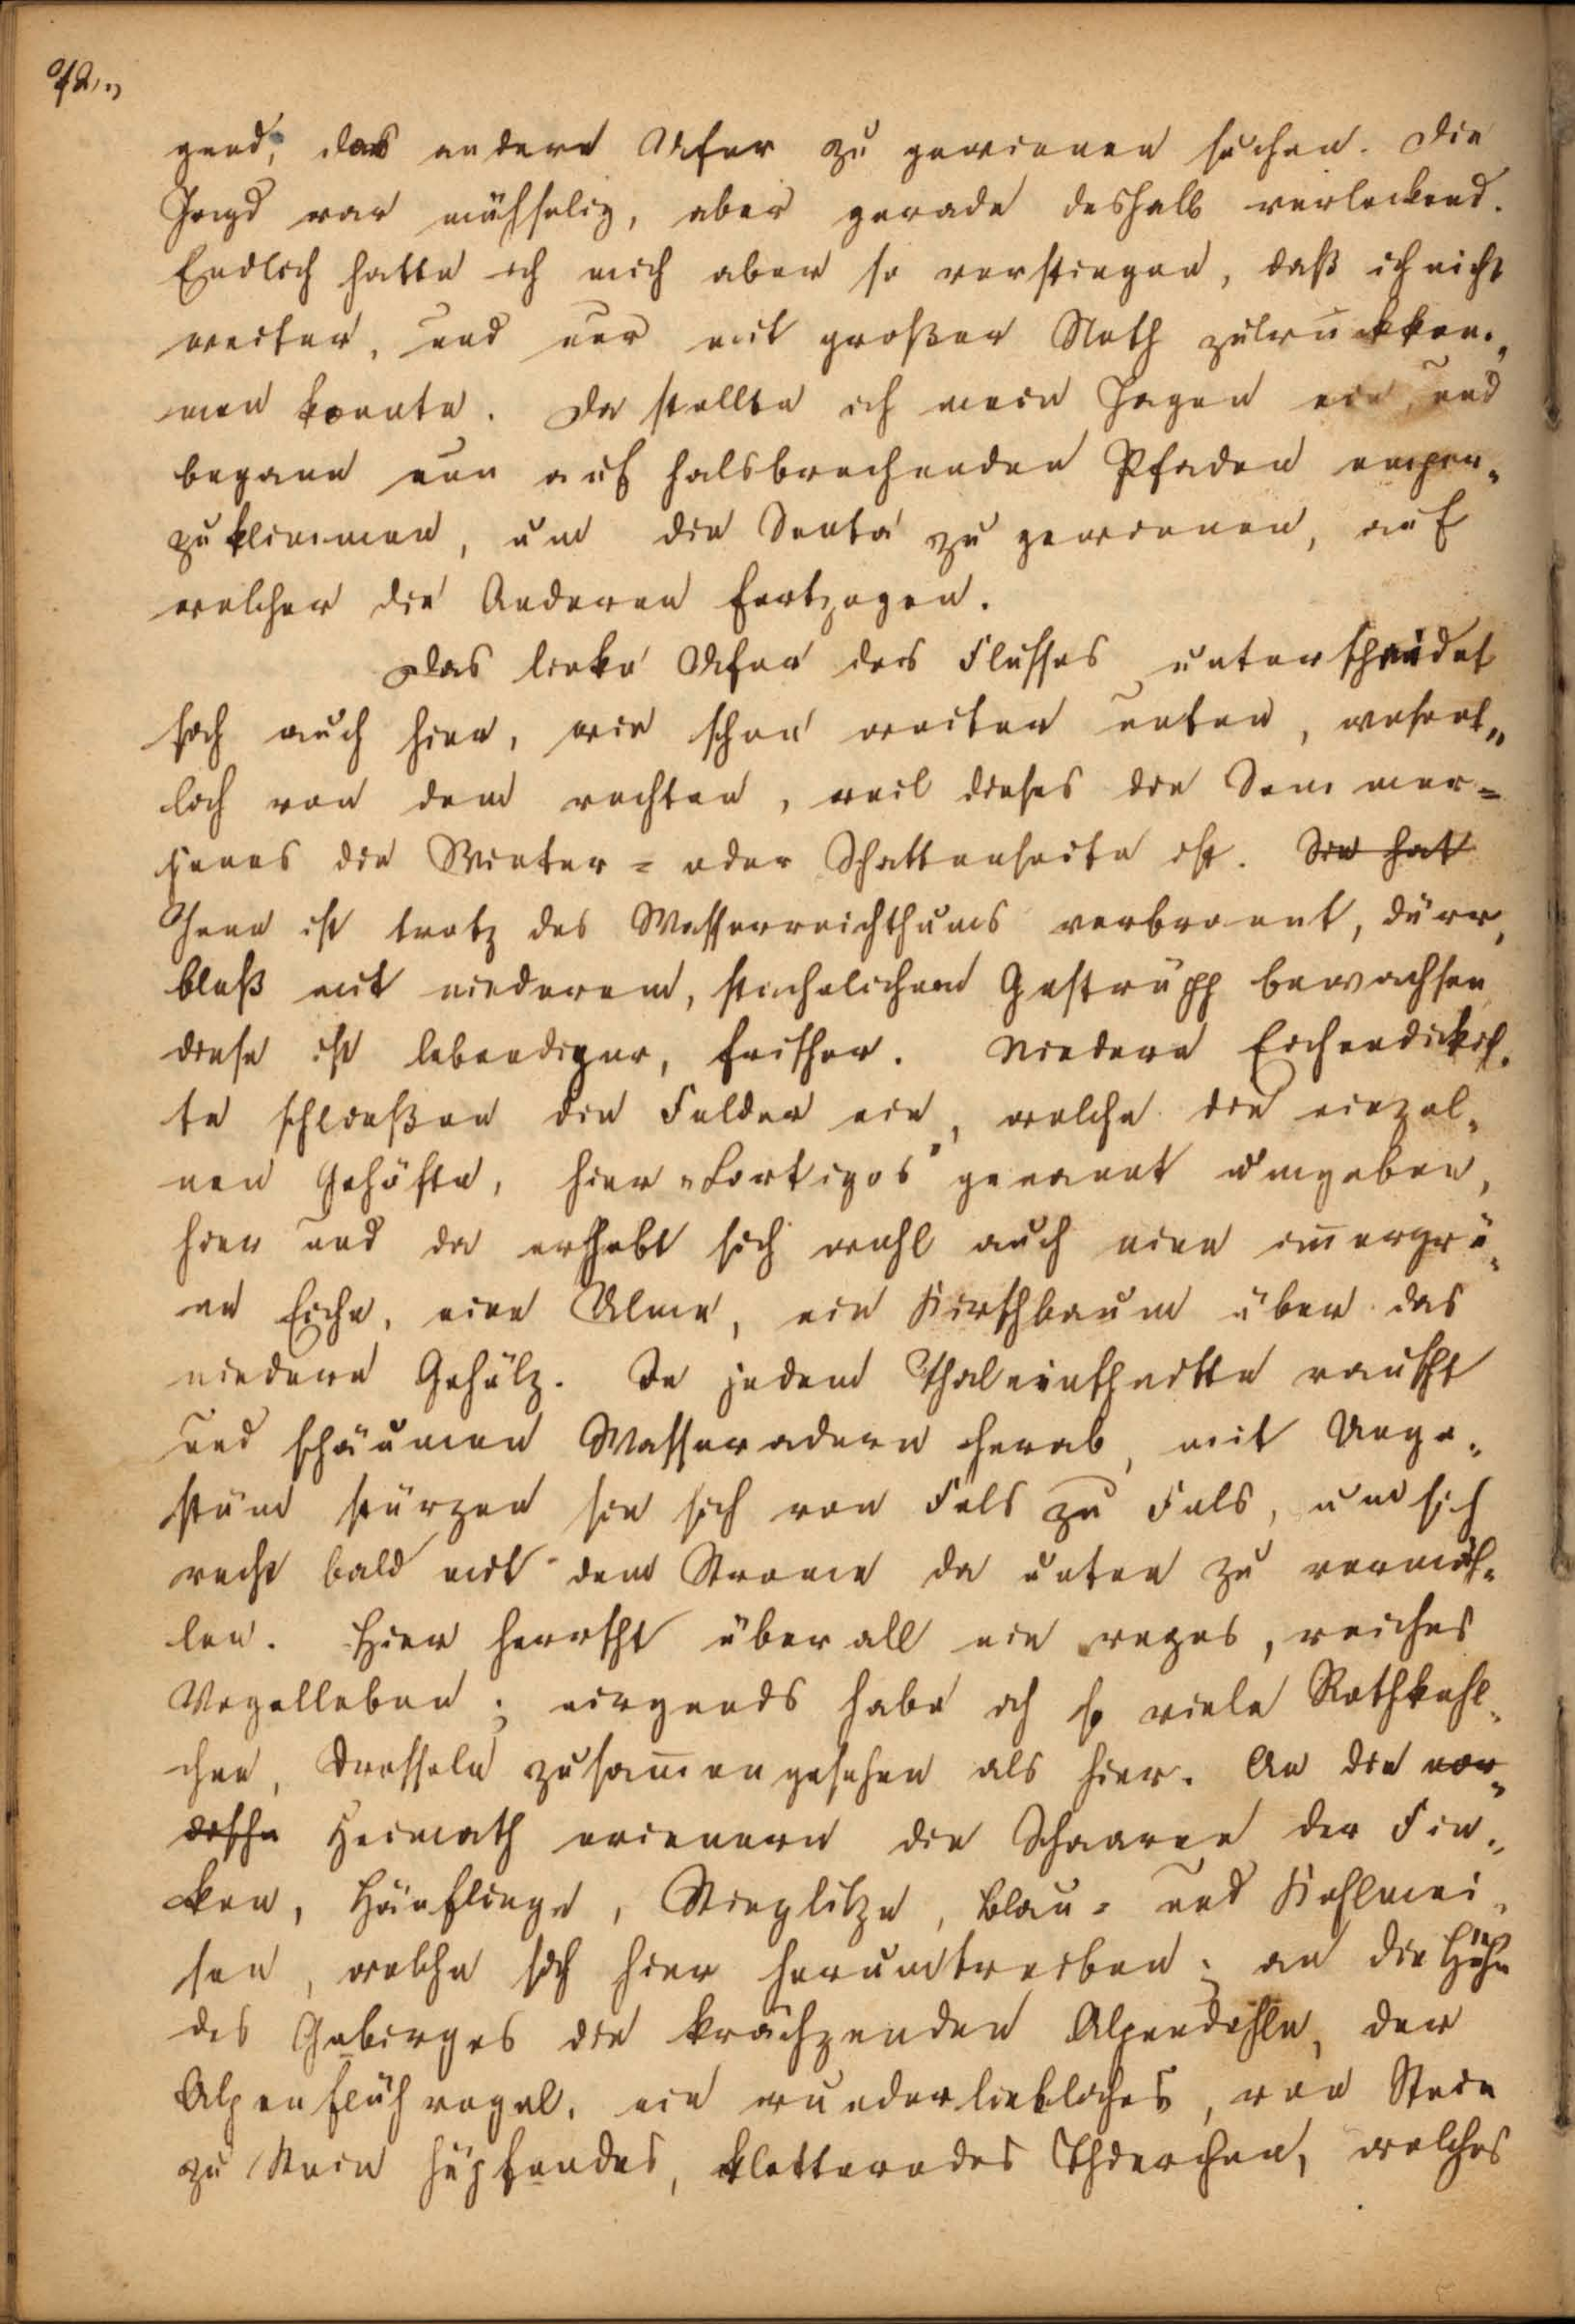 gend, das andere Ufer zu gewinnen suchen. Die
Jagd war mühselig, aber gerade deshalb verlockend.
Endlich hatte ich mich aber so verstiegen, daß ich nicht
weiter, und nur mit großer Noth zurückkom-
men konnte. Da stellte ich mein Jagen ein, und
begann nun auf halsbrechenden Pfaden empor-
zuklimmen, um die Senta zu gewinnen, auf
welcher die Anderen fortzogen.
Das linke Ufer des Flusses unterscheidet
sich auch hier, wie schon weiter unten, wesent„
lich von dem rechten, weil dieses die Sommer=
jenes die Winter= oder Schattenseite ist. Sie hat
Jene ist trotz des Wasserreichthums verbrannt, dürr,
bloß mit niederem, stachelichem Gestrüpp bewachsen
diese ist lebendiger, frischer. Niedere Eichendickich-
te schließen die Felder ein, welche die einzel-
nen Gehöfte, hier „Cortigos" genannt umgeben,
hier und da erhebt sich wohl auch eine im̄ergrü-
ne Eiche, eine Ulme, ein Kirschbaum über das
niedere Gehölz. In jedem Thaleinschnitte rauscht
und schäumen Wasseradern herab, mit Unge-
stüm stürzen sie sich von Fels zu Fels, um sich
recht bald mit dem Strome da unten zu vermäh-
len. Hier herrscht überall ein reges, reiches
Vogelleben; nirgends habe ich so viele Rothkehl-
chen, Drosseln zusam̄engesehen als hier. An die nor-
dische Heimath erinnern die Schaaren der Fin-
ken, Hänflinge, Stieglitze, Blau= und Kohlmei-
sen, welche sich hier herumtreiben; an die Höhe
des Gebirges die krächzenden Alpendohle, der
Alpenflühvogel, ein wunderliebliches, von Stein
zu Stein hüpfendes, kletterndes Thierchen, welches